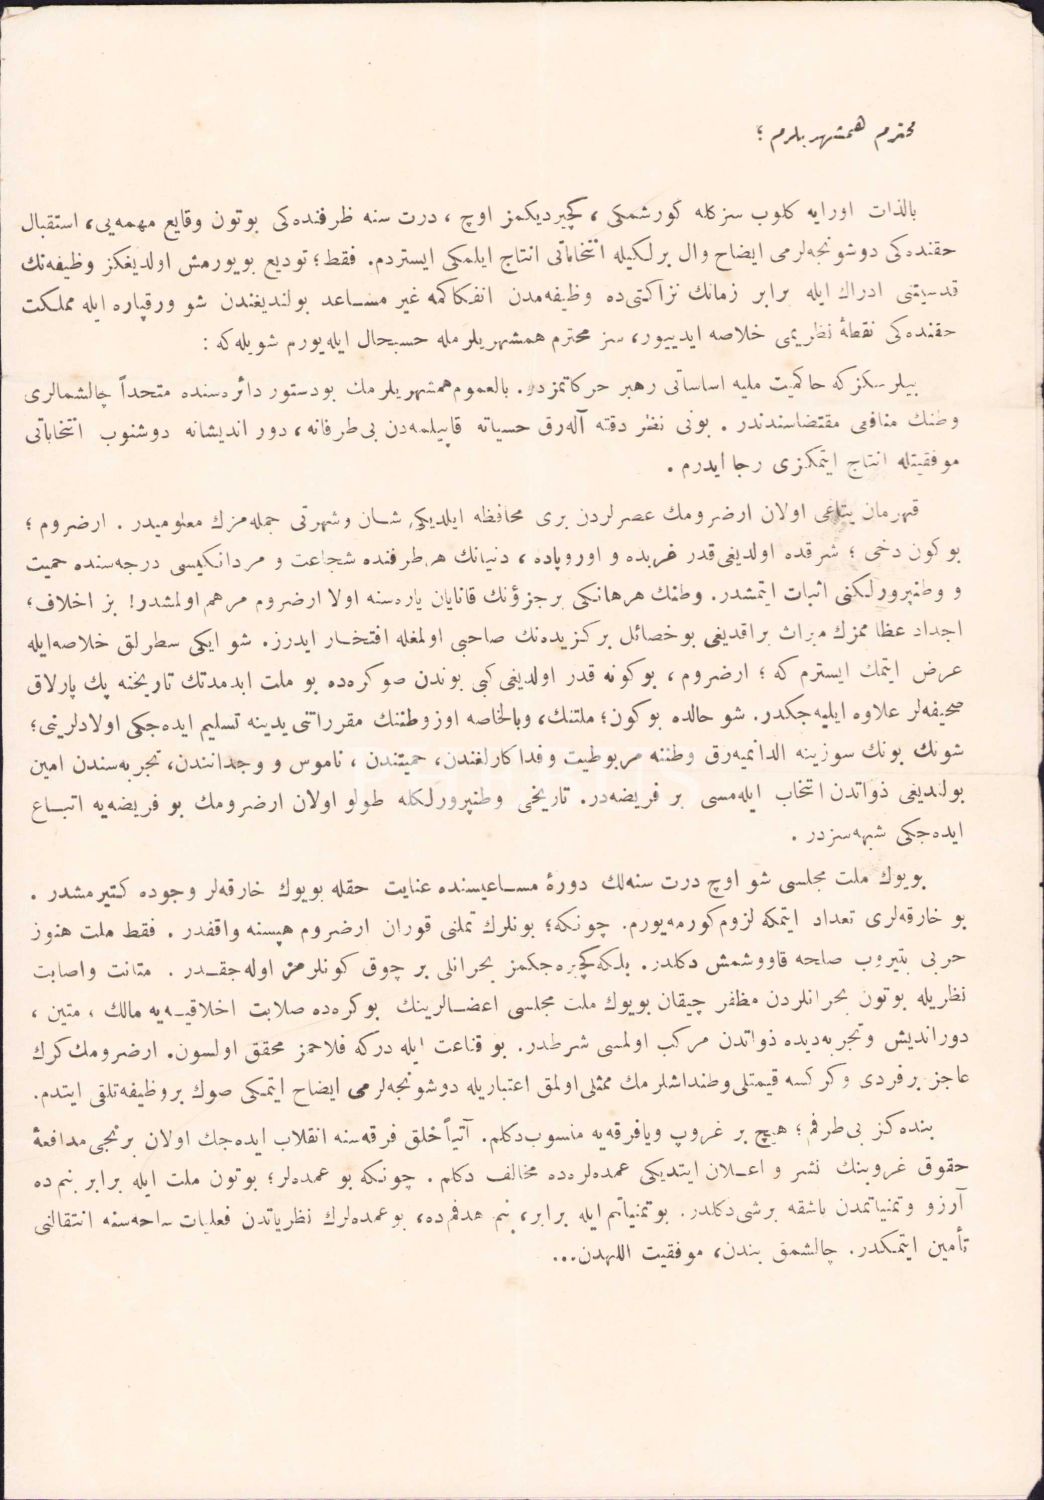 محترم همشهریلرم ؛
بالذات اورایه كلوب سزكله كورشمكی ، كچیردیكمز اوچ ، درت سنه ظرفنده‌كی بوتون وقایع مهمه‌یی، استقبال
حقنده‌كی دوشونجه‌لرمی ایضاح وال برلكیله انتخاباتی انتاج ایلمكی ایستردم. فقط؛ تودیع بویورمش اولدیغكز وظیفه‌نك
قدسیتنی ادراك ایله برابر زمانك نزاكتی‌ده وظیفه‌مدن انفكاكمه غیر مساعد بولندیغندن شو ورقپاره ایله مملكت
حقنده‌كی نقطهٔ نظریمی خلاصه ایدییور، سز محترم همشهریلرمله حسبحال ایله‌یورم شویله‌كه :
بیلرسكز كه حاكمیت ملیه اساساتی رهبر حركاتمزدر. بالعموم همشهریلرمك بودستور دائره‌سنده متحداً چالشمالری
وطنك منافعی مقتضاسندندر . بونی نظر دقته آله‌رق حسیاته قاپیلمه‌دن بی‌طرفانه، دور اندیشانه دوشنوب انتخاباتی
موفقیتله انتاج ایتمكزی رجا ایدرم .
قهرمان یتاغی اولان ارضرومك عصرلردن بری محافظه ایلدیكی شان وشهرتی جمله‌مزك معلومیدر . ارضروم ؛
بوكون دخی ؛ شرقده اولدیغی قدر غربده و اوروپاده ، دنیانك هر طرفنده شجاعت و مردانكیسی درجه‌سنده حمیت
و وطنپرورلكنی اثبات ایتمشدر. وطنك هرهانكی برجزؤنك قانایان یاره‌سنه اولا ارضروم مرهم اولمشدر! بز اخلاف؛
اجداد عظاممزك میراث براقدیغی بو خصائل بركزیده‌نك صاحبی اولمغله افتخار ایدرز. شو ایكی سطرلق خلاصه‌ایله
عرض ایتمك ایسترم كه ؛ ارضروم ، بوكونه قدر اولدیغی كبی بوندن صوكره‌ده بو ملت ابدمدتك تاریخنه پك پارلاق
صحیفه‌لر علاوه ایلیه‌جكدر. شو حالده بوكون؛ ملتنك، وبالخاصه اوز وطننك مقرراتنی یدینه تسلیم ایده‌جكی اولادلرینی؛
شونك بونك سوزینه الدانمیه‌رق وطننه مربوطیت وفداكارلغندن، حمیتندن ، ناموس و وجدانندن، تجربه‌سندن امین
بولندیغی ذواتدن انتخاب ایله‌مسی بر فریضه‌در. تاریخی وطنپرورلكله طولو اولان ارضرومك بو فریضه‌یه اتباع
ایده‌جكی شبهه‌سزدر .
بویوك ملت مجلسی شو اوچ درت سنه‌لك دورهٔ مساعیسنده عنایت حقله بویوك خارقه‌لر وجوده كتیرمشدر .
بو خارقه‌لری تعداد ایتمكه لزوم كورمه‌یورم. چونكه؛ بونلرك تملنی قوران ارضروم هپسنه واقفدر . فقط ملت هنوز
حربی بتیروب صلحه قاووشمش دكلدر. بلكه كچیره‌جكمز بحرانلی بر چوق كونلرمز اوله‌جقدر . متانت واصابت
نظریله بوتون بحرانلردن مظفر چیقان بویوك ملت مجلسی اعضالرینك بوكره‌ده صلابت اخلاقیه‌یه مالك ، متین ،
دوراندیش وتجربه‌دیده ذواتدن مركب اولمسی شرطدر. بو قناعت ایله دركه فلاحمز محقق اولسون. ارضرومك كرك
عاجز برفردی وكركسه قیمتلی وطنداشلرمك ممثلی اولمق اعتباریله دوشونجه‌لرمی ایضاح ایتمكی صوك بر وظیفه تلقی ایتدم.
بنده‌كز بی‌طرفم؛ هیچ بر غروپ ویا فرقه‌یه منسوب دكلم. آتیاً خلق فرقه‌سنه انقلاب ایده‌جك اولان برنجی مدافعهٔ
حقوق غروپنك نشر و اعلان ایتدیكی عمده‌لره‌ده مخالف دكلم . چونكه بو عمده‌لر؛ بوتون ملت ایله برابر بنم ده
آرزو وتمنیاتمدن باشقه برشی دكلدر. بو تمنیاتم ایله برابر، بنم هدفم‌ده، بو عمده‌لرك نظریاتدن فعلیات ساحه‌سنه انتقالنی
تأمین ایتمكدر. چالشمق بندن، موفقیت اللهدن...